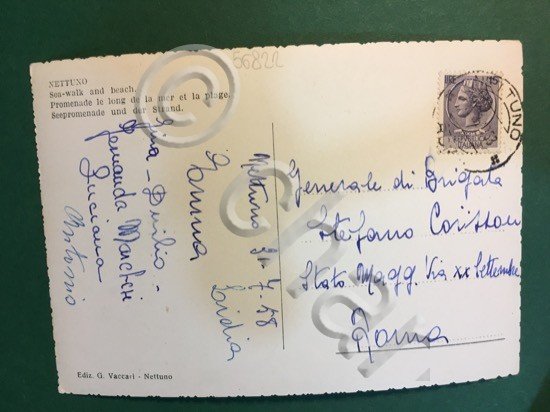 56822
NETTUNO
Sea-walk and beach.
Promenade le long de la mer et la plage.
Seepromenade und der Strand.
Nettuno 21-7-58
Anna Lidia
Gina - Duilio -
Fernanda
Luciana
Antonio
Generale di Brigata
Stefano
Stato Magg. Via XX Settembre
Roma
NETTUNO
Ediz. G. Vaccari - Nettuno
©